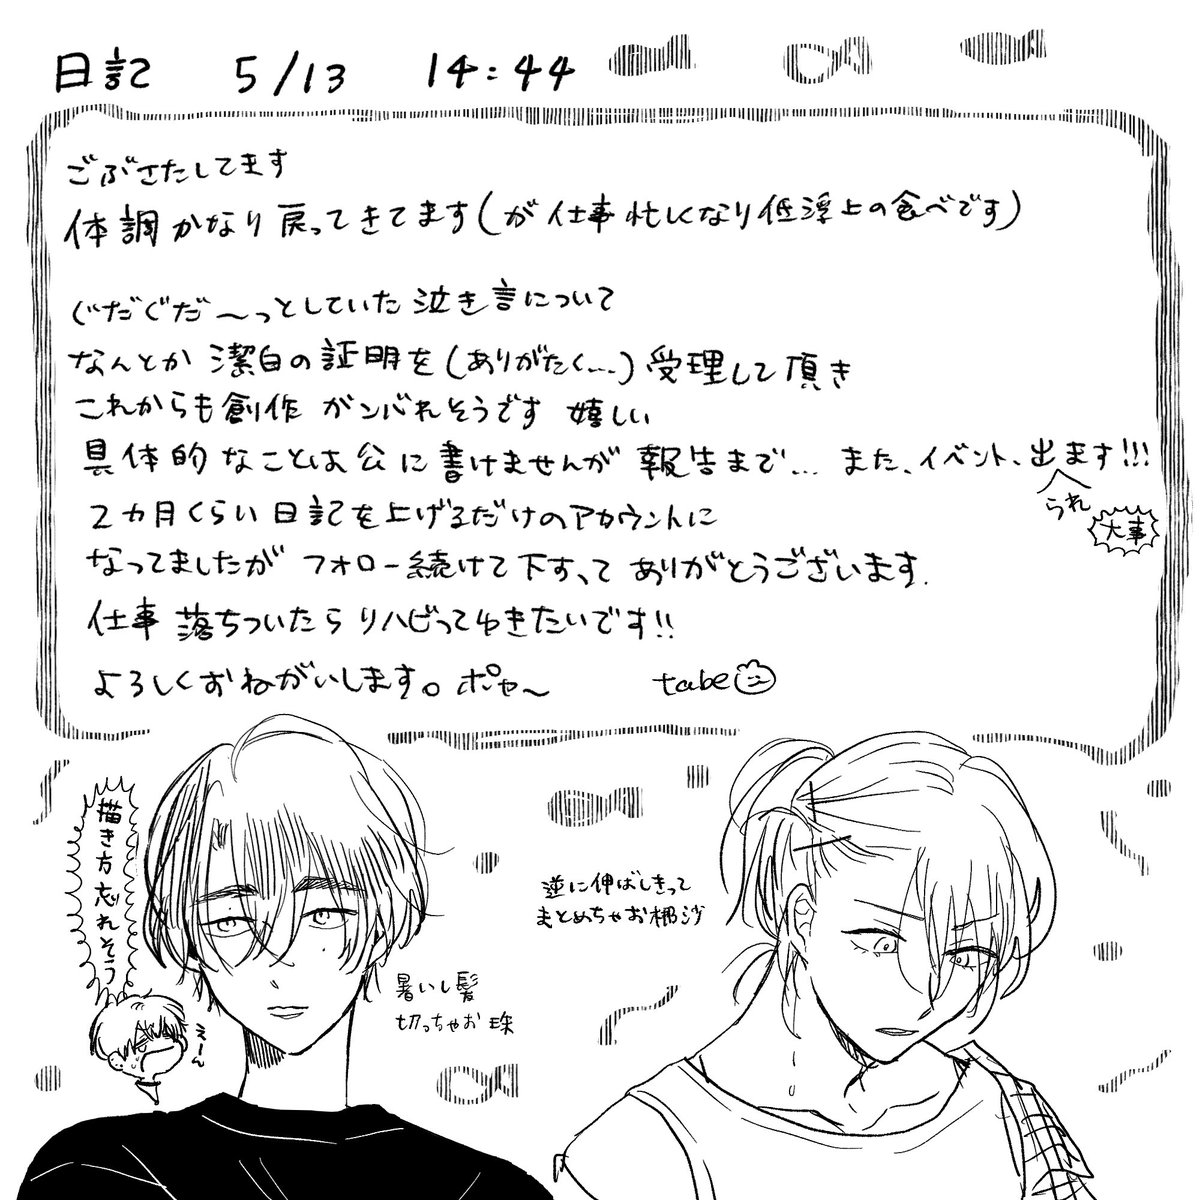 日記 5/13 14:44
ごぶさたしてます
体調かなり戻ってきてます(が仕事忙しくなり低浮上の食べです)
ぐだぐだ〜っとしていた泣き言について
なんとか潔白の証明を(ありがたく...)受理して頂き
これからも創作がンバれそうです 嬉しい
具体的なことは公に書けませんが報告まで... また、イベント、出ます!!!
られ
大事
2カ月くらい日記を上げるだけのアカウントに
なってましたがフォロー続けて下すってありがとうございます.
仕事落ちついたらリハビってゆきたいです!!
よろしくおねがいします。ポャ〜 tabe
描き方忘れそう
えーん
暑いし髪
切っちゃお珠
逆に伸ばしきって
まとめちゃお梛沙